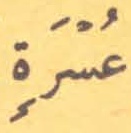 عُسْرَةٍ